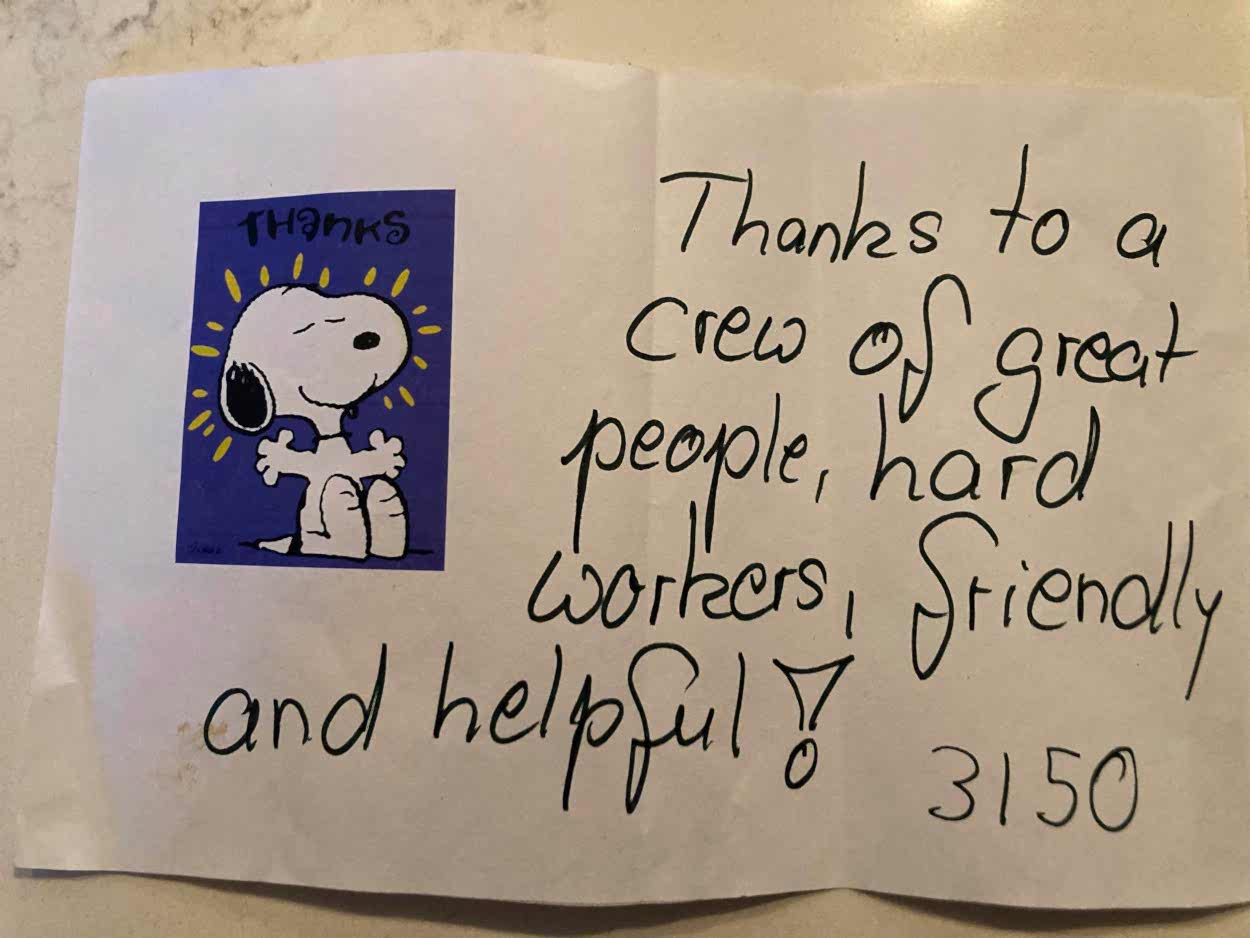 THANKS
Thanks to a
crew of great
people, hard
workers, friendly
and helpful!
3150